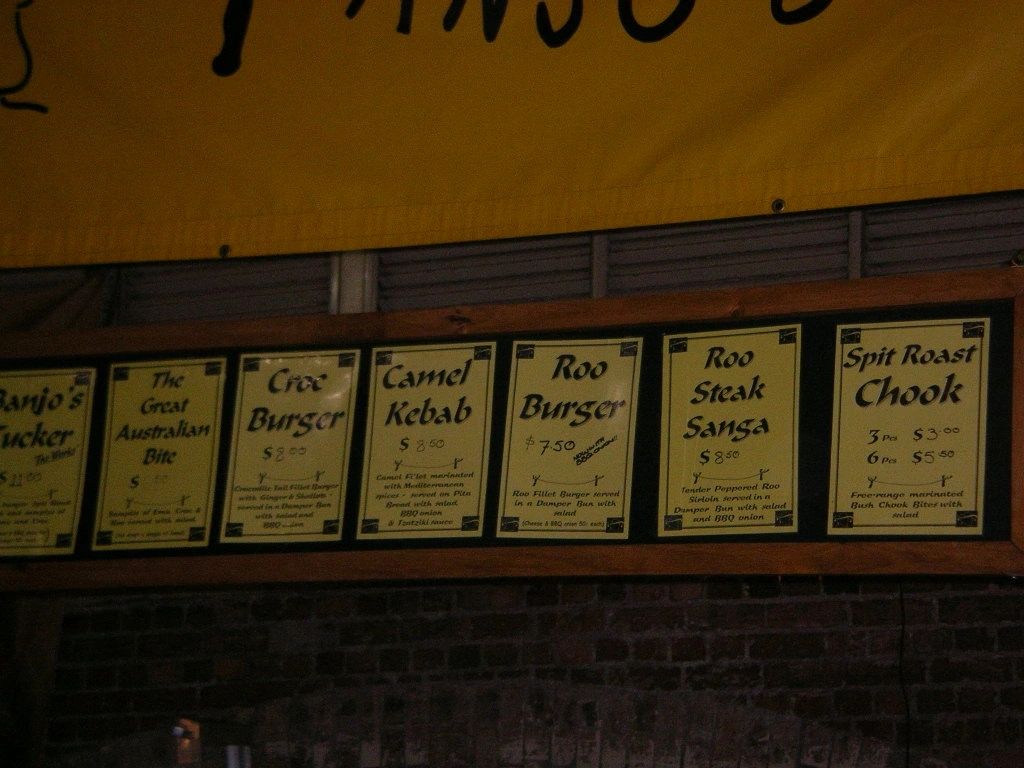 Banjo's
Tucker
The Works
$ 11.00
The
Great
Australian
Bite
$
Samples of Emu, Croc &
Roo served with salad
Croc
Burger
$ 8.00
Crocodile Tail Fillet Burger
with Ginger & Shallots -
served in a Damper Bun
with salad and
BBQ onion
Camel
Kebab
$ 8.50
Camel Fillet marinated
with Mediterranean
spices - served on Pita
Bread with salad
BBQ onion
& Tzatziki sauce
Roo
Burger
$ 7.50
BBQ ONION!!
Roo Fillet Burger served
in a Damper Bun with
salad
(Cheese & BBQ onion 50c each)
Roo
Steak
Sanga
$ 8.50
Tender Peppered Roo
Sirloin served in a
Damper Bun with salad
and BBQ onion
Spit Roast
Chook
3 Pcs $3.00
6 Pcs $5.50
Free-range marinated
Bush Chook Bites with
salad